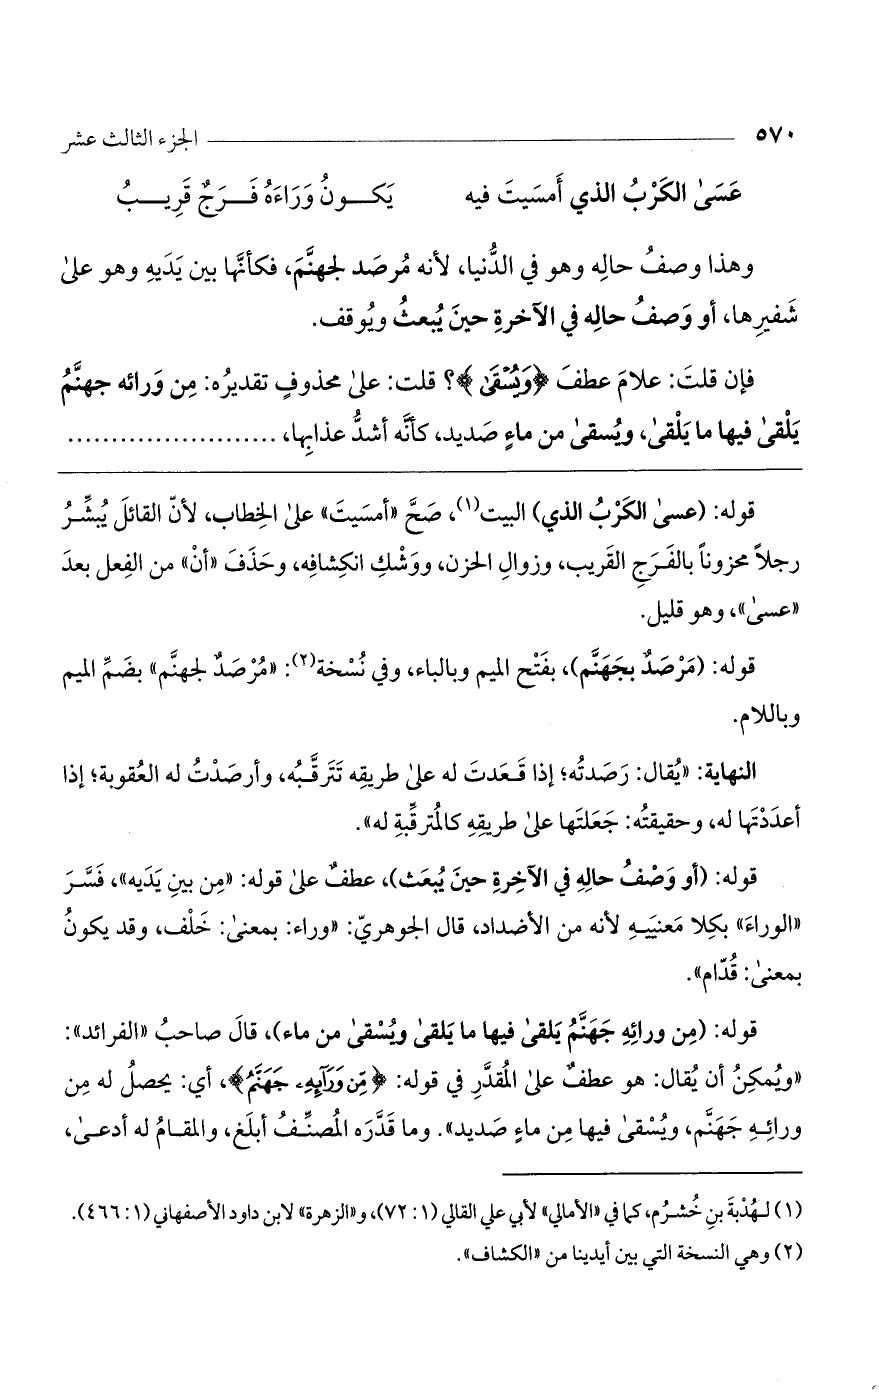 ٥٧٠ ـــــــ الجزء الثالث عشر
عَسَىٰ الكَرْبُ الذي أَمسَيتَ فيه يَكـــونُ وَرَاءَهُ فَـــرَجٌ قَرِيـــبُ
وهذا وصفُ حالِه وهو في الدُّنيا، لأنه مُرصَد لجهنَّمَ، فكأنَّها بين يَدَيهِ وهو علىٰ
شَفيرِها، أو وَصفُ حالِه في الآخرةِ حينَ يُبعثُ ويُوقف.
فإن قلتَ: علامَ عطفَ ﴿وَيُسْقَىٰ﴾؟ قلت: علىٰ محذوفٍ تقديرُه: مِن وَرائه جهنَّمُ
يَلْقىٰ فيها ما يَلْقىٰ، ويُسقىٰ من ماءٍ صَديد، كأنَّه أشدُّ عذابِها، ........................
قوله: (عسىٰ الكَرْبُ الذي) البيت(١)، صَحَّ «أمسَيتَ» علىٰ الخِطاب، لأنّ القائلَ يُبشِّرُ
رجلاً محزوناً بالفَرَجِ القَريب، وزوالِ الحزن، ووَشْكِ انكِشافِه، وحَذَفَ «أنْ» من الفِعل بعدَ
«عسىٰ»، وهو قليل.
قوله: (مَرْصَدٌ بجَهَنَّم)، بفَتْح الميم وبالباء، وفي نُسْخة(٢): «مُرْصَدٌ لجهنَّم» بضَمِّ الميم
وباللام.
النهاية: «يُقال: رَصَدتُه؛ إذا قَـعَدتَ له علىٰ طريقِه تَتَرقَّبُه، وأرصَدْتُ له العُقوبة؛ إذا
أعدَدْتَها له، وحقيقتُه: جَعَلتَها علىٰ طريقِهِ كالمُترقِّبةِ له».
قوله: (أو وَصْفُ حالِهِ في الآخِرةِ حينَ يُبعَث)، عطفٌ علىٰ قوله: «مِن بينِ يَدَيه»، فَسَّرَ
«الوراءَ» بكِلا مَعنيَيـهِ لأنه من الأضداد، قال الجوهريّ: «وراء: بمعنىٰ: خَلْف، وقد يكونُ
بمعنىٰ: قُدّام».
قوله: (مِن ورائِهِ جَهَنَّمُ يَلقىٰ فيها ما يَلقىٰ ويُسْقىٰ من ماء)، قالَ صاحبُ «الفرائد»:
«ويُمكِنُ أن يُقال: هو عطفٌ علىٰ المُقدَّرِ في قوله: ﴿مِّن وَرَآئِهِۦ جَهَنَّمُ﴾، أي: يحصلُ له مِن
ورائِـهِ جَهَنَّم، ويُسْقىٰ فيها مِن ماءٍ صَديد». وما قَدَّرَه المُصنِّـفُ أبلَغ، والمقـامُ له أدعـىٰ،
(١) لـهُدْبةَ بنِ خُشـرُم، كما في «الأمالي» لأبي علي القالي (١: ٧٢)، و«الزهرة» لابن داود الأصفهاني (١: ٤٦٦).
(٢) وهي النسخة التي بين أيدينا من «الكشاف».